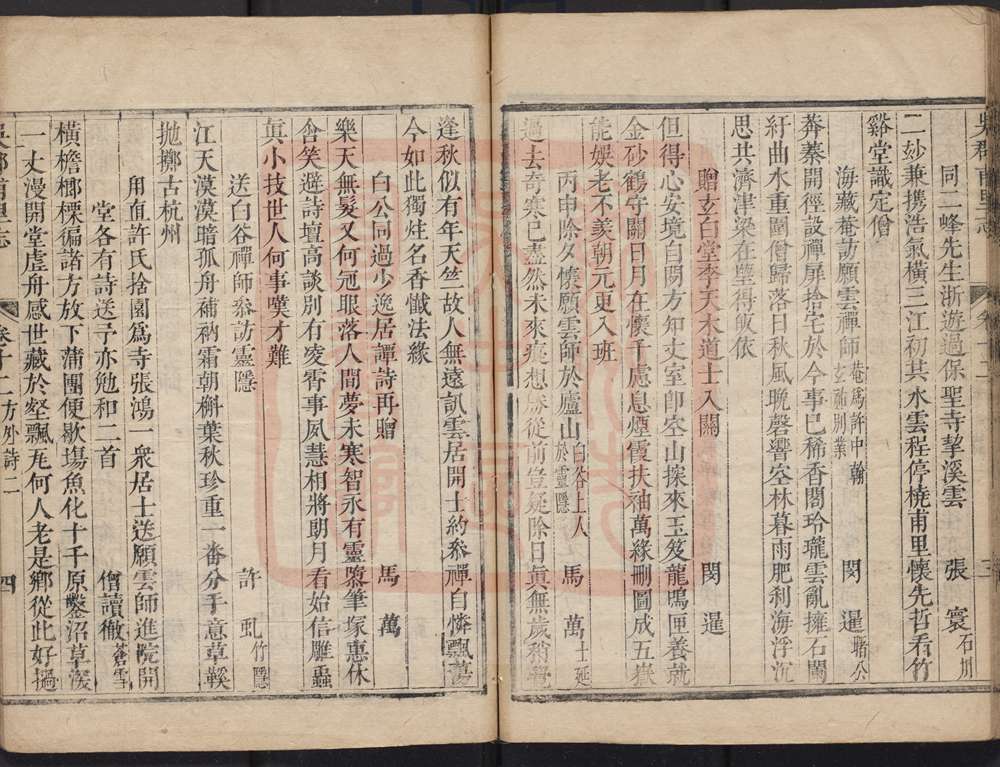 吳郡甫里志 卷十二 三
同二峰先生浙遊過保聖寺挈溪雲 張寰石川
二玅兼攜浩氣橫三江初其水雲程停橈甫里懷先哲看竹
谿堂識定僧
海藏菴訪願雲禪師菴爲許中翰玄祐別業 閔暹
莽蓁開徑設禪屏捨宅於今事已稀香閣玲瓏雲亂擁石闌
紆曲水重圍僧歸落日秋風晚磬響空林暮雨肥利海浮沉
思共濟津梁在望得皈依
贈玄百堂李天木道士入關 閔暹
但得心安境自閒方知丈室卽空山探來玉笈龍鳴匣養就
金砂鶴守關日月在懷千慮息煙霞扶袖萬緣刪圖成五嶽
能娛老不羨朝元更入班
丙申除夕懷願雲師於廬山白谷上人於靈隱 馬萬士延
過去奇寒已盡然未來癡想 從前豈疑除日眞無歲稍覺
逢秋似有年天竺故人無遠訊雲居開士約叅禪自憐飄蕩
今如此獨炷名香懺法緣
白公同過少逸居譚詩再贈 馬萬
樂天無髮又何冠眼落人間夢未寒智永有靈慙筆塚惠休
含笑避詩壇高談別有凌霄事夙慧相將朗月看始信雕蟲
眞小技世人何事嘆才難
送白谷禪師叅訪靈隱 許虬竹隱
江天漠漠暗孤舟補衲霜朝槲葉秋珍重一番分手意草鞵
拋擲古杭州
用直許氏捨園爲寺張鴻一衆居士送願雲師進院開
堂各有詩送予亦勉和二首 僧讀徹蒼雪
橫擔楖標徧諸方放下蒲團便歇場魚化十千原鑿沼草深
一丈漫開堂虛舟感世藏於壑飄瓦何人老是鄉從此好過
吳郡甫里志 卷十二方外詩二 四